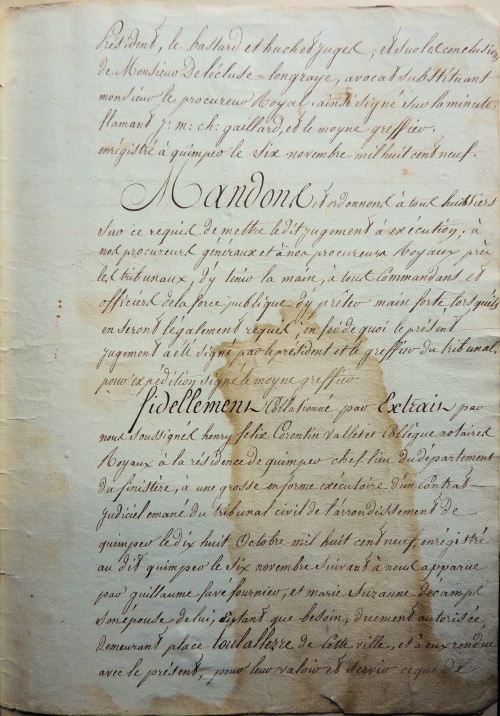 président, le bastard et huchet juges, et sur les conclusions
de Monsieur Delécluse-longraye, avocat substituant
monsieur le procureur Royal. ainsi signé sur la minute
flamant j: m: ch: gaillard, et le moyne greffier.
enrégistré à quimper le six novembre mil huit cent neuf.
Mandons et ordonnons à tous huissiers
sur ce requis de mettre ledit jugement à exécution, à
nos procureurs généraux et à nos procureurs Royaux près
les tribunaux, d'y tenir la main, à tous Commandans et
officiers de la force publique d'y prêter main forte lorsqu'ils
en seront légalement requis; en foi de quoi le présent
jugement a été signé par le président et le greffier du tribunal,
pour expédition signé le moyne greffier
fidellement Collationné par Extrait par
nous soussignés henry felix Corentin Vallet et Collègue notaires
Royaux à la résidence de quimper chef lieu du département
du finistère, à une grosse en forme exécutoire d'un Contrat
judiciel emané du tribunal civil de l'arrondissement de
quimper le dix huit Octobre mil huit cent neuf, enrégistré
au dit quimper le six novembre suivant à nous apparue
par guillaume favé fournier, et marie Suzanne
son épouse de lui, Estant que besoin, duement autorisée,
demeurant place toulallezre de Cette ville, et à eux rendue
avec le présent, pour leur valoir et servir ce que de